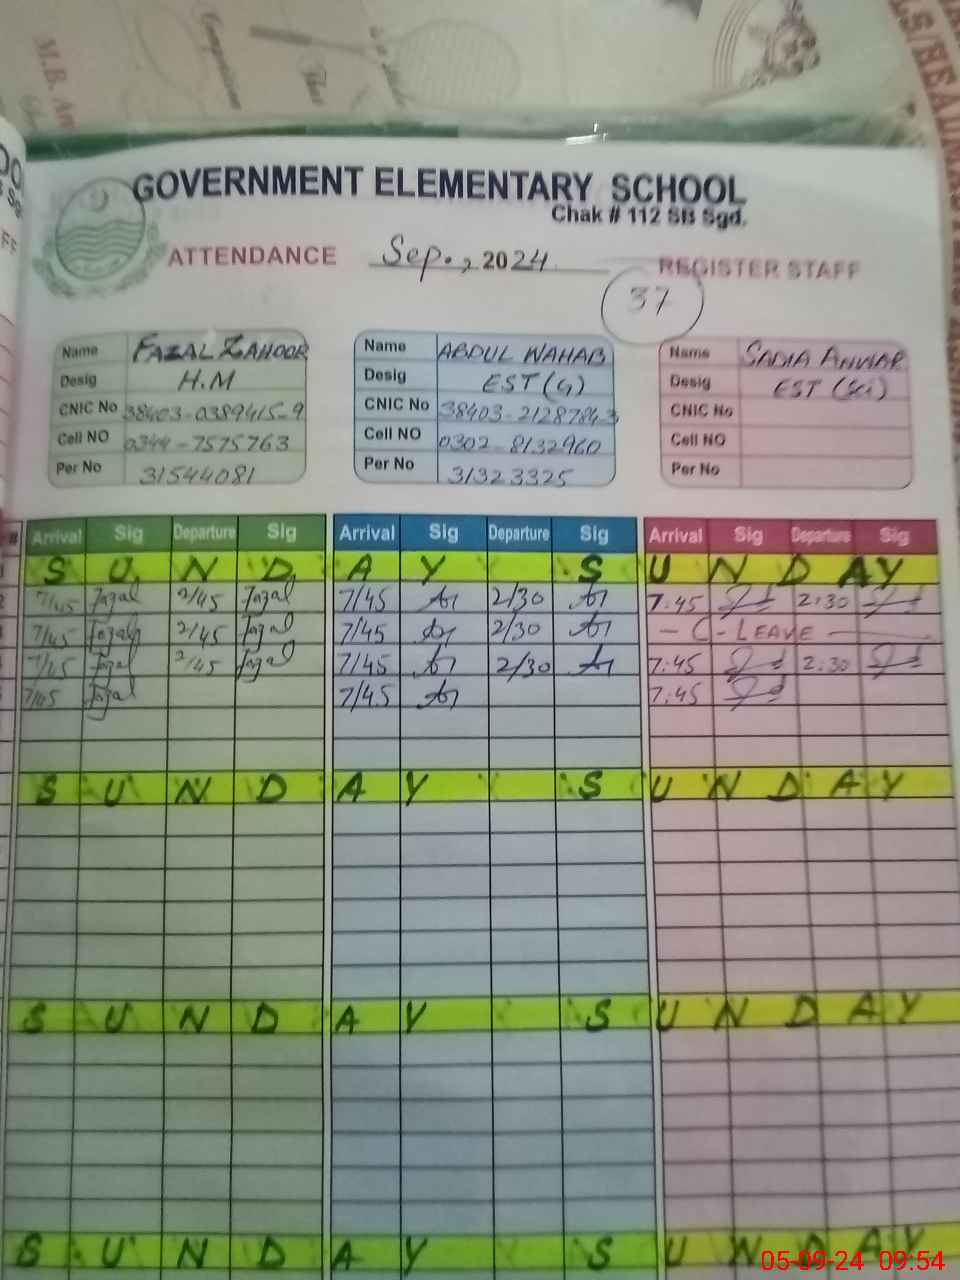 GOVERNMENT ELEMENTARY SCHOOL
Chak # 112 SB Sgd.
ATTENDANCE Sep., 2024 REGISTER STAFF
37
Name FAZAL ZAHOOR Name ABDUL WAHAB Name SADIA ANWAR
Desig H.M Desig EST (G) Desig EST (Sci)
CNIC No 38403-0389415-9 CNIC No 38403-2128784-3 CNIC No
Cell NO 0344-7575763 Cell NO 0302-8132960 Cell NO
Per No 31544081 Per No 31323325 Per No
Arrival Sig Departure Sig Arrival Sig Departure Sig Arrival Sig Departure Sig
S U N D A Y S U N D A Y
7/45 Fazal 2/45 Fazal 7/45 2/30 7:45 2:30
7/45 Fazal 2/45 Fazal 7/45 2/30 - C - LEAVE -
7/45 Fazal 2/45 Fazal 7/45 2/30 7:45 2:30
7/45 Fazal 7/45 7:45
S U N D A Y S U N D A Y
S U N D A Y S U N D A Y
S U N D A Y S U N D A Y
05-09-24 09:54